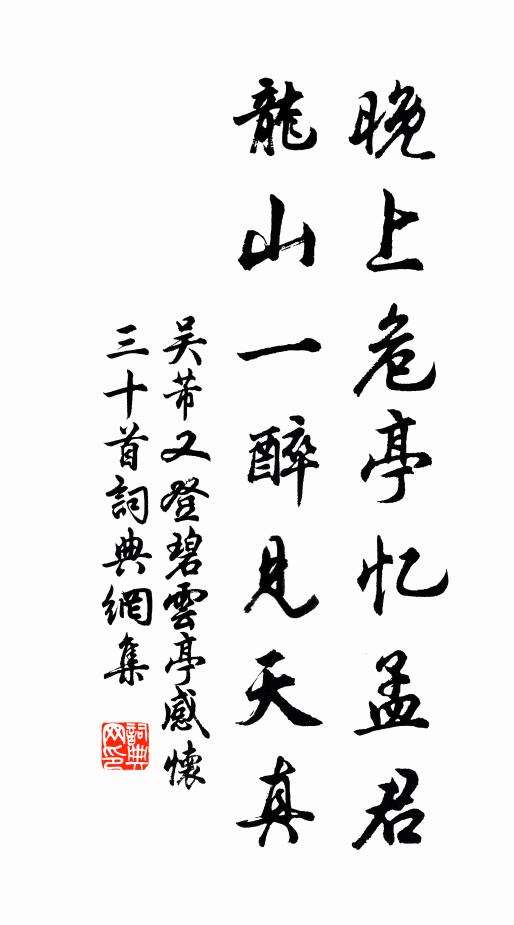 晚上危亭忆孟君
龍山一醉見天真
吴芾又登碧雲亭感懷
三十首詞典網集
詞典
网印